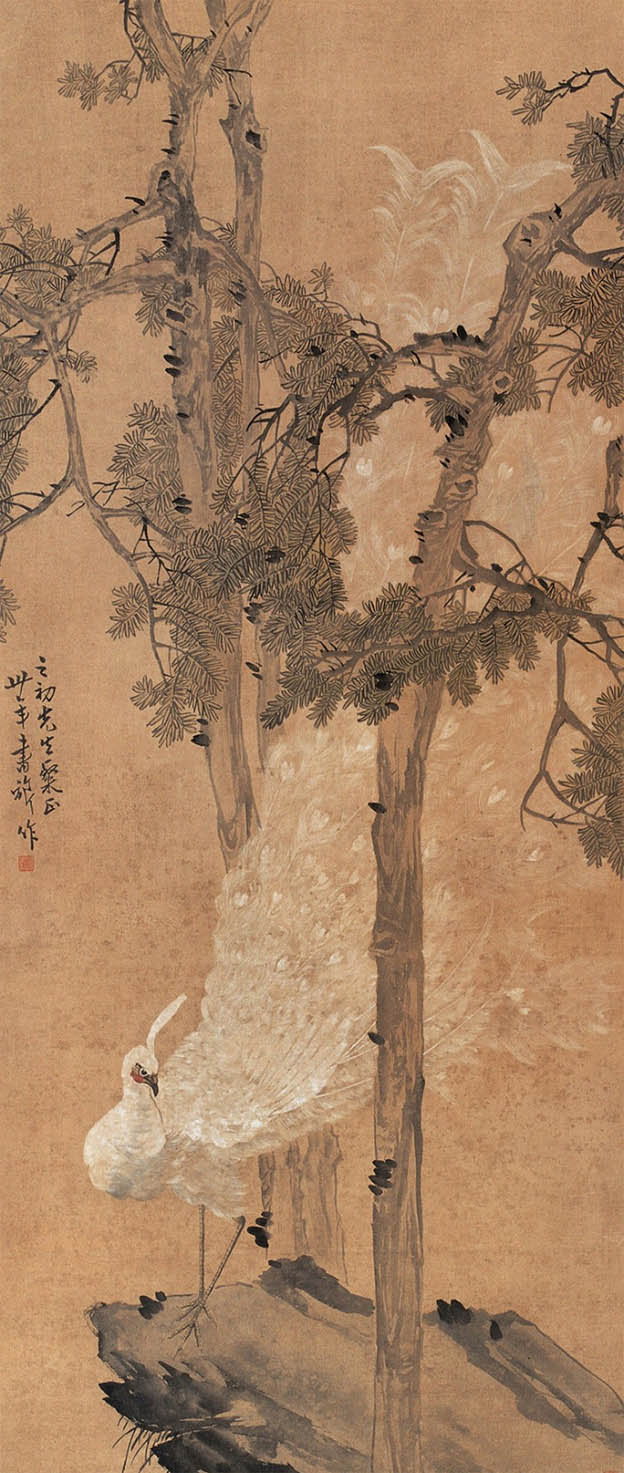 之初先生粲正
卅年書旂作